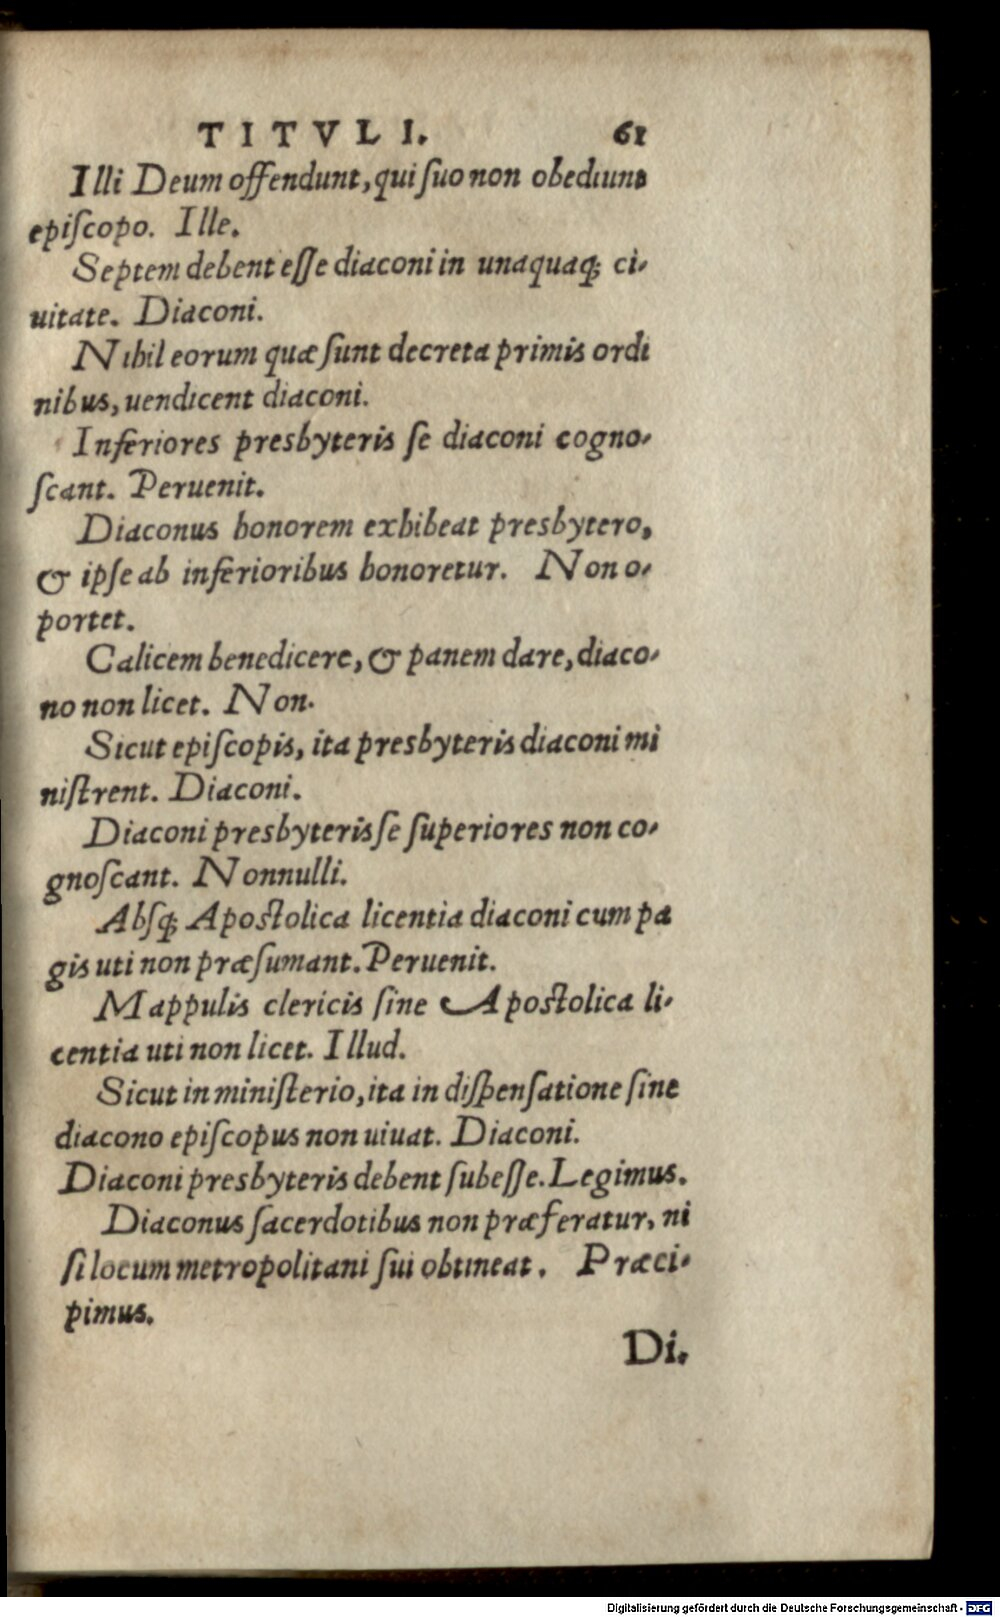 TITVLI. 61
Illi Deum offendunt, qui ſuo non obediunt
epiſcopo. Ille.
Septem debent eſſe diaconi in unaquaq; ci-
uitate. Diaconi.
Nihil eorum quæ ſunt decreta primis ordi
nibus, uendicent diaconi.
Inferiores presbyteris ſe diaconi cogno-
ſcant. Peruenit.
Diaconus honorem exhibeat presbytero,
& ipſe ab inferioribus honoretur. Non o-
portet.
Calicem benedicere, & panem dare, diaco-
no non licet. Non.
Sicut epiſcopis, ita presbyteris diaconi mi
niſtrent. Diaconi.
Diaconi presbyteris ſe ſuperiores non co-
gnoſcant. Nonnulli.
Abſq; Apoſtolica licentia diaconi cum pa
gis uti non præſumant. Peruenit.
Mappulis clericis ſine Apoſtolica li-
centia uti non licet. Illud.
Sicut in miniſterio, ita in diſpenſatione ſine
diacono epiſcopus non uiuat. Diaconi.
Diaconi presbyteris debent ſubeſſe. Legimus.
Diaconus ſacerdotibus non præferatur, ni
ſi locum metropolitani ſui obtineat. Præci-
pimus.
Di.
Digitalisierung gefördert durch die Deutsche Forschungsgemeinschaft - DFG